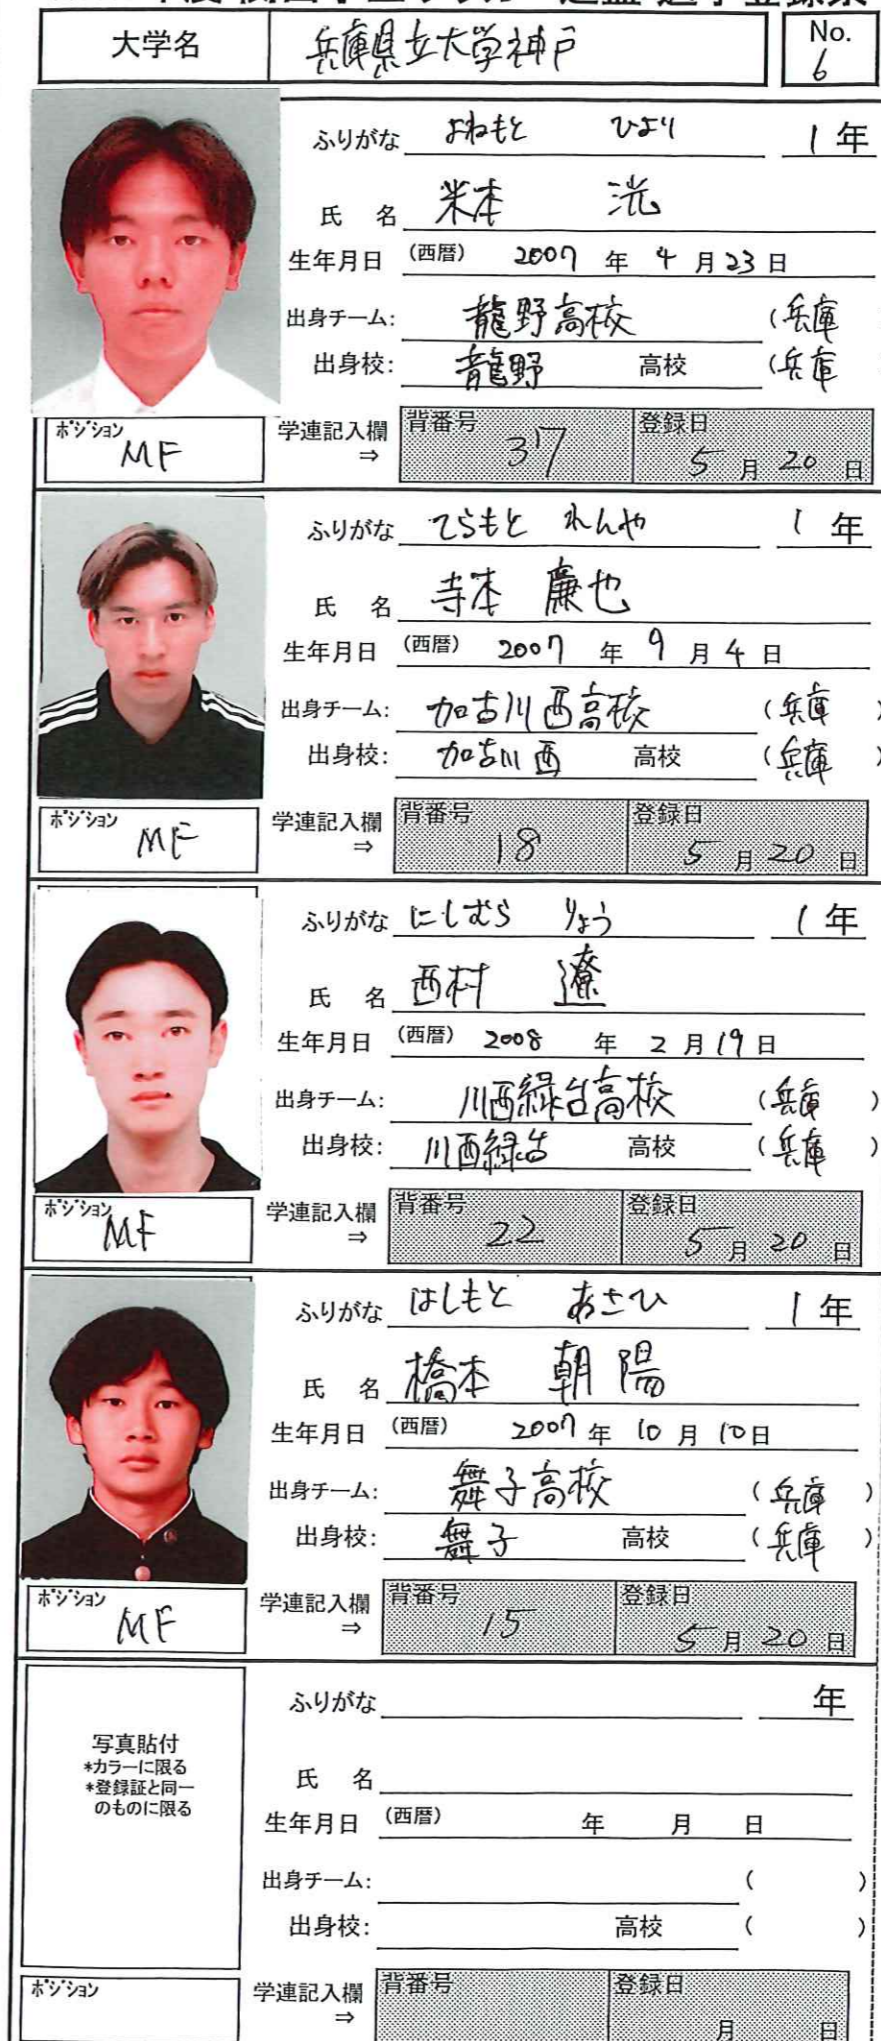 大学名 兵庫県立大学神戸 No. 6
ふりがな よねもと ひより 1年
氏名 米本 洸
生年月日 (西暦) 2007年4月23日
出身チーム: 龍野高校 (兵庫
出身校: 龍野 高校 (兵庫
ポジション MF 学連記入欄⇒ 背番号 37 登録日 5月20日
ふりがな てらもと れんや 1年
氏名 寺本 廉也
生年月日 (西暦) 2007年9月4日
出身チーム: 加古川西高校 (兵庫)
出身校: 加古川西 高校 (兵庫)
ポジション MF 学連記入欄⇒ 背番号 18 登録日 5月20日
ふりがな にしむら りょう 1年
氏名 西村 遼
生年月日 (西暦) 2008年2月19日
出身チーム: 川西緑台高校 (兵庫)
出身校: 川西緑台 高校 (兵庫)
ポジション MF 学連記入欄⇒ 背番号 22 登録日 5月20日
ふりがな はしもと あさひ 1年
氏名 橋本 朝陽
生年月日 (西暦) 2007年10月10日
出身チーム: 舞子高校 (兵庫)
出身校: 舞子 高校 (兵庫)
ポジション MF 学連記入欄⇒ 背番号 15 登録日 5月20日
写真貼付
*カラーに限る
*登録証と同一
のものに限る
ふりがな 年
氏名
生年月日 (西暦) 年 月 日
出身チーム: ( )
出身校: 高校 ( )
ポジション 学連記入欄⇒ 背番号 登録日 月 日